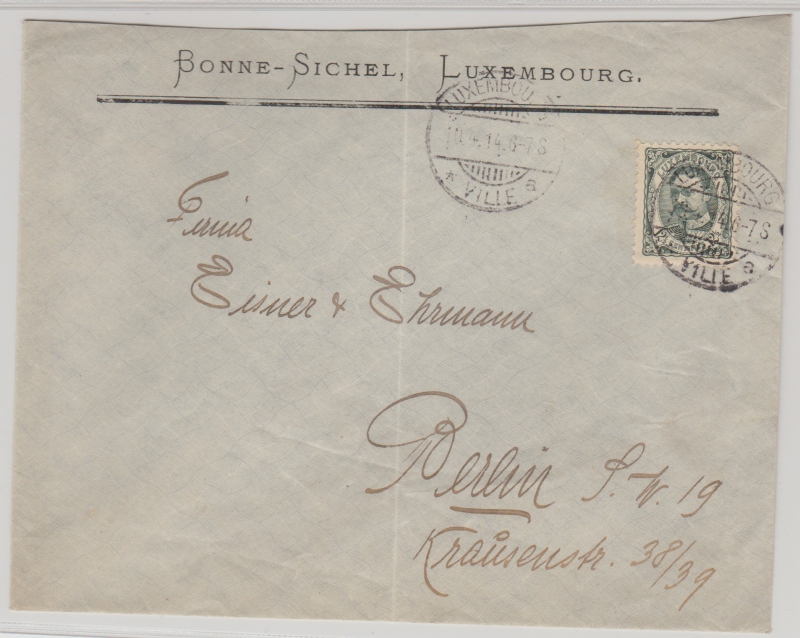 BONNE-SICHEL, LUXEMBOURG.
LUXEMBOU
10.4.14.6-7S
* VILLE a
LUXEMBOURG
BOURG
6-7S
VILLE a
Firma
Eisner & Ehrmann
Berlin S.W. 19
Krausenstr. 38/39